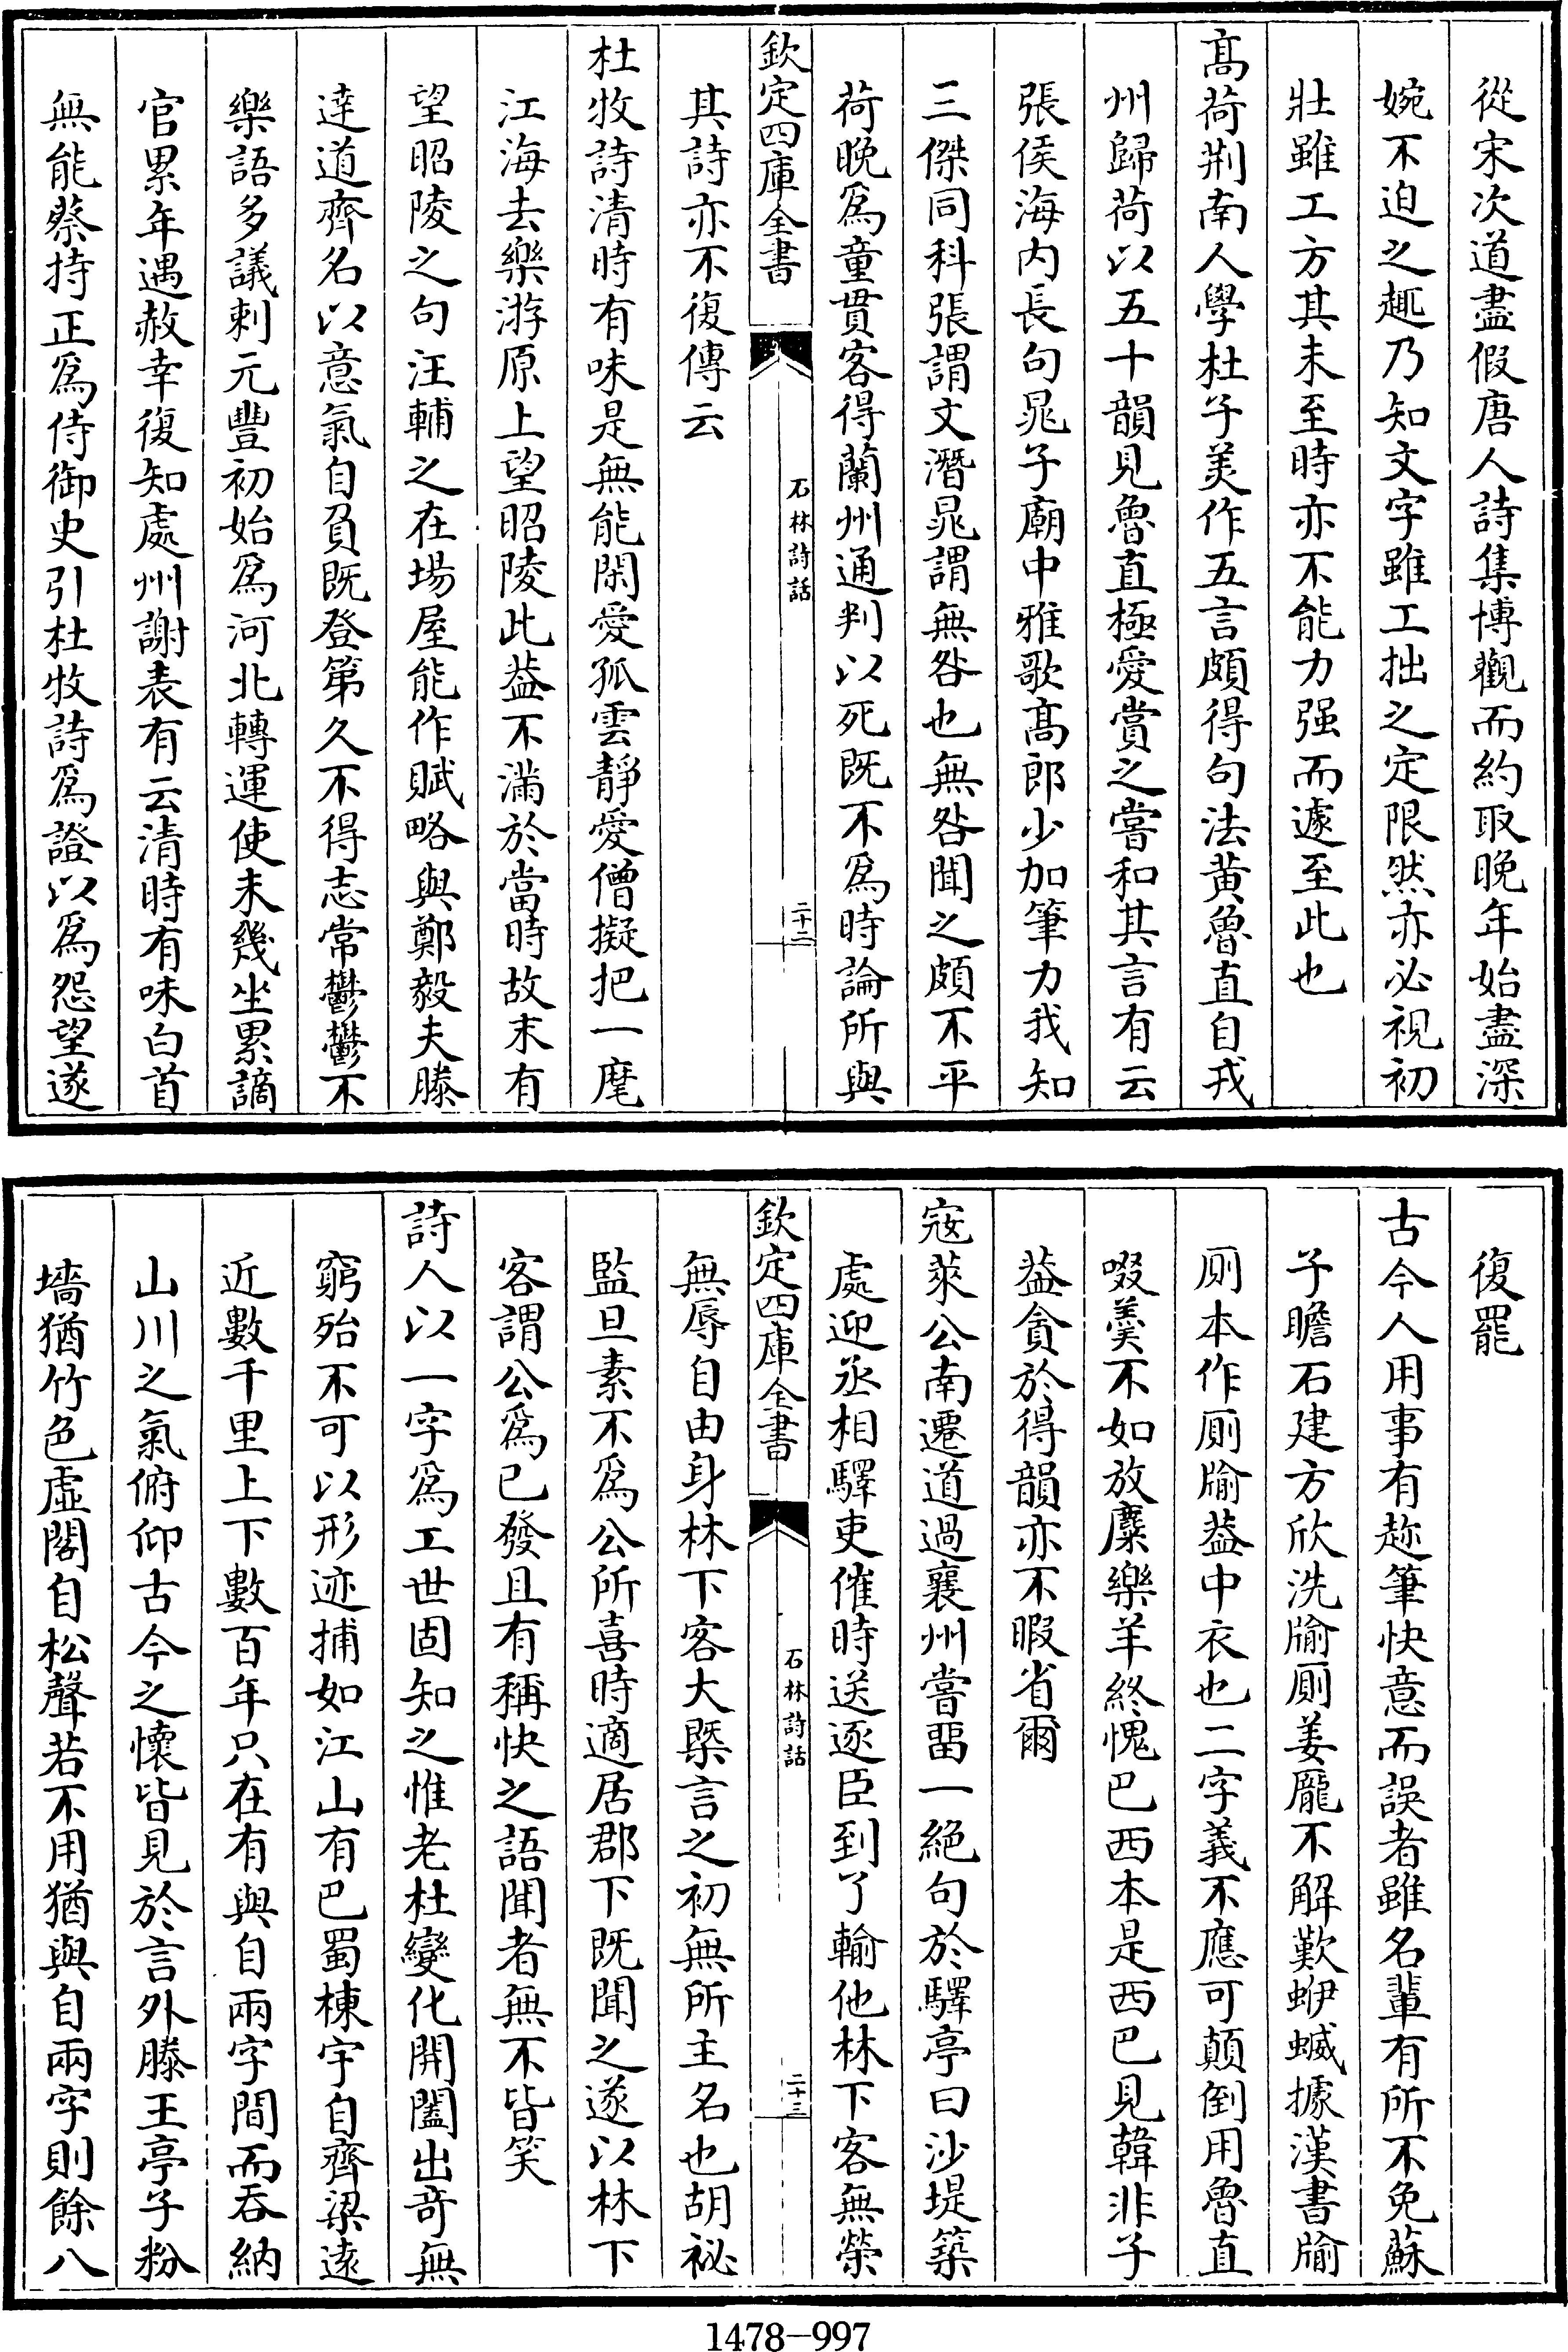 從宋次道盡假唐人詩集博觀而約取晚年始盡深
婉不迫之趣乃知文字雖工拙之定限然亦必視初
壯雖工方其未至時亦不能力强而遽至此也
髙荷荆南人學杜子美作五言頗得句法黄魯直自戎
州歸荷以五十韻見魯直極愛賞之嘗和其言有云
張侯海内長句晁子廟中雅歌髙郎少加筆力我知
三傑同科張謂文潛晁謂無咎也無咎聞之頗不平
荷晚爲童貫客得蘭州通判以死既不爲時論所與
欽定四庫全書
石林詩話
二十二
其詩亦不復傳云
杜牧詩清時有味是無能閑愛孤雲靜愛僧擬把一麾
江海去樂游原上望昭陵此葢不滿於當時故末有
望昭陵之句汪輔之在場屋能作賦略與鄭毅夫滕
逹道齊名以意氣自負既登第久不得志常鬱鬱不
樂語多議刺元豐初始爲河北轉運使未幾坐累謫
官累年遇赦幸復知處州謝表有云清時有味白首
無能蔡持正爲侍御史引杜牧詩爲證以爲怨望遂
復罷
古今人用事有趂筆快意而誤者雖名輩有所不免蘇
子瞻石建方欣洗牏厠姜龐不解歎蛜蝛據漢書牏
厠本作厠牏葢中衣也二字義不應可顛倒用魯直
啜羮不如放麋樂羊終愧巴西本是西巴見韓非子
葢貪於得韻亦不暇省爾
寇萊公南遷道過襄州嘗留一絶句於驛亭曰沙堤築
處迎丞相驛吏催時送逐臣到了輸他林下客無榮
欽定四庫全書
石林詩話
二十三
無辱自由身林下客大槩言之初無所主名也胡祕
監旦素不爲公所喜時適居郡下既聞之遂以林下
客謂公爲已發且有稱快之語聞者無不皆笑
詩人以一字爲工世固知之惟老杜變化開闔出竒無
窮殆不可以形迹捕如江山有巴蜀棟宇自齊梁逺
近數千里上下數百年只在有與自兩字間而吞納
山川之氣俯仰古今之懷皆見於言外滕王亭子粉
墻猶竹色虚閣自松聲若不用猶與自兩字則餘八
1478-997